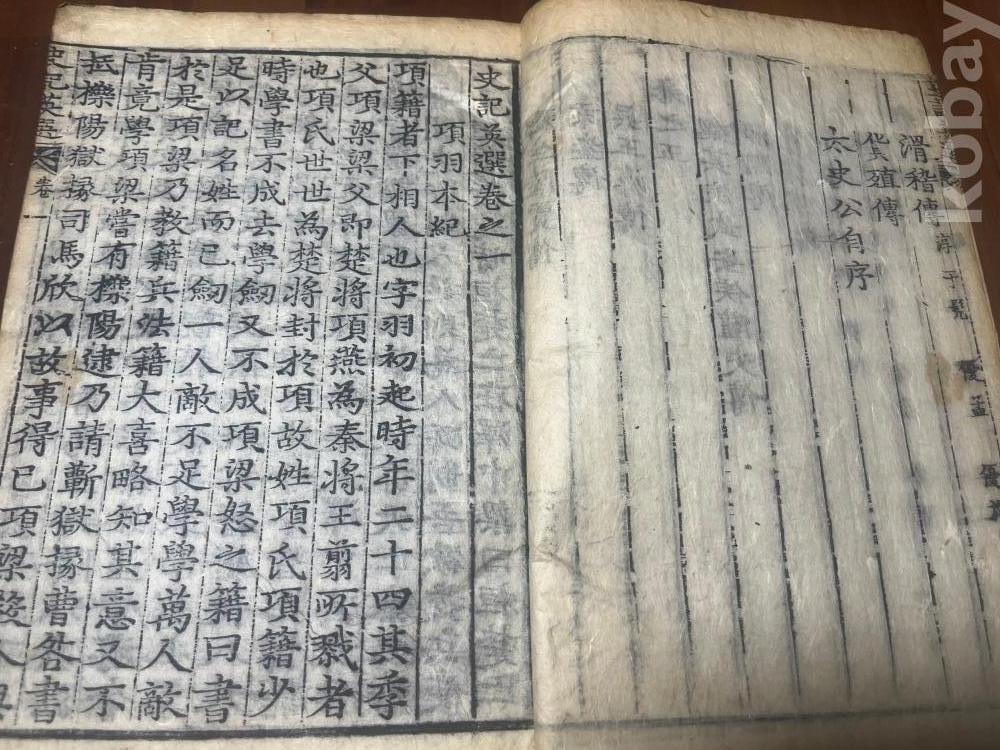 滑稽傳 淳于髡 優孟 優旃
貨殖傳
太史公自序
史記英選卷之一
項羽本紀
項籍者下相人也字羽初起時年二十四其季
父項梁梁父即楚將項燕為秦將王翦所戮者
也項氏世世為楚將封於項故姓項氏項籍少
時學書不成去學劒又不成項梁怒之籍曰書
足以記名姓而已劒一人敵不足學學萬人敵
於是項梁乃教籍兵法籍大喜略知其意又不
肯竟學項梁嘗有櫟陽逮乃請蘄獄掾曹咎書
抵櫟陽獄掾司馬欣以故事得已項梁殺人與
史記英選 卷一
kobay